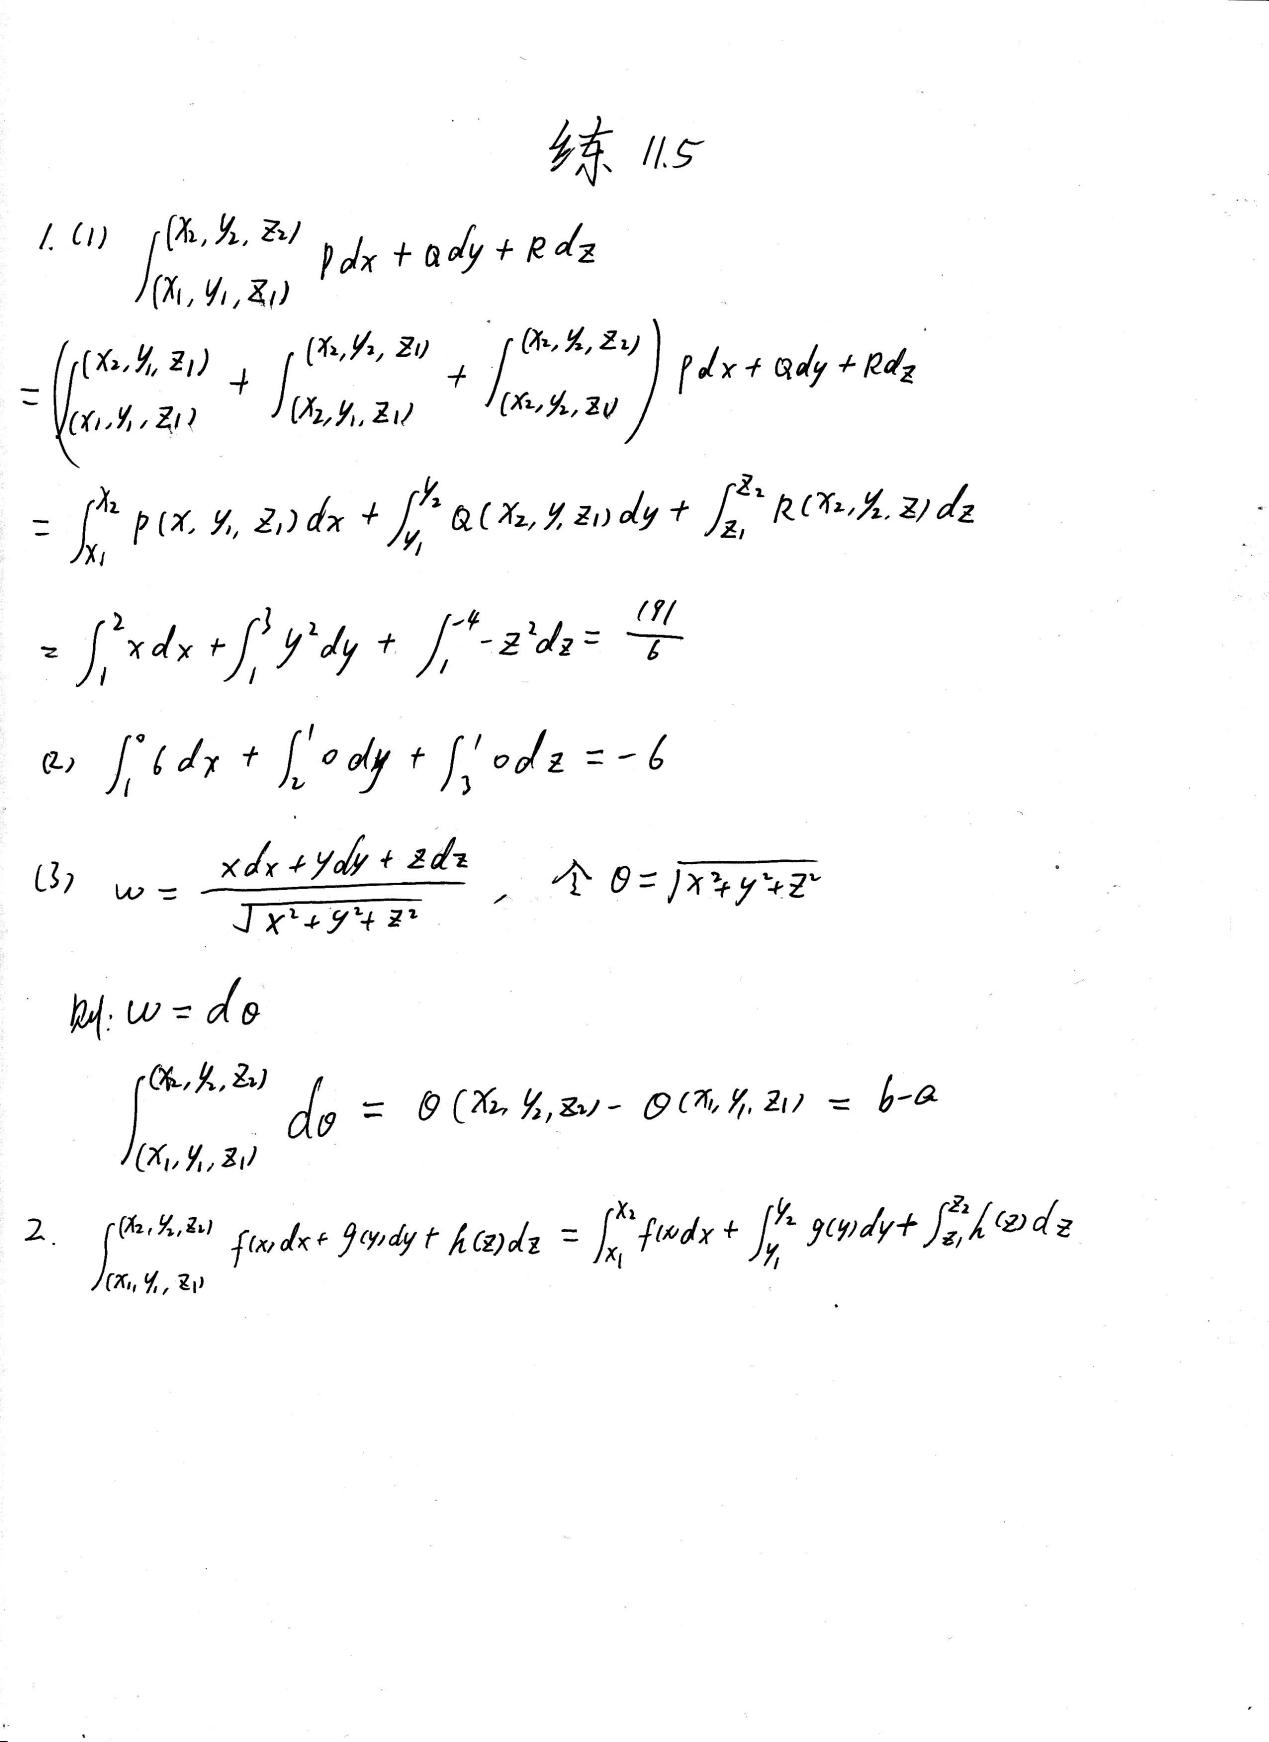 练 11.5
1. (1) ∫_{(x₁, y₁, z₁)}^{(x₂, y₂, z₂)} Pdx + Qdy + Rdz
= (∫_{(x₁, y₁, z₁)}^{(x₂, y₁, z₁)} + ∫_{(x₂, y₁, z₁)}^{(x₂, y₂, z₁)} + ∫_{(x₂, y₂, z₁)}^{(x₂, y₂, z₂)}) Pdx + Qdy + Rdz
= ∫_{x₁}^{x₂} P(x, y₁, z₁)dx + ∫_{y₁}^{y₂} Q(x₂, y, z₁)dy + ∫_{z₁}^{z₂} R(x₂, y₂, z)dz
= ∫_1^2 xdx + ∫_1^3 y²dy + ∫_1^{-4} -z²dz = 191/6
(2) ∫_1^0 6dx + ∫_2^1 0dy + ∫_3^1 0dz = -6
(3) w = (xdx + ydy + zdz)/√(x²+y²+z²) , 令 θ = √(x²+y²+z²)
则: w = dθ
∫_{(x₁, y₁, z₁)}^{(x₂, y₂, z₂)} dθ = θ(x₂, y₂, z₂) - θ(x₁, y₁, z₁) = b-a
2. ∫_{(x₁, y₁, z₁)}^{(x₂, y₂, z₂)} f(x)dx + g(y)dy + h(z)dz = ∫_{x₁}^{x₂} f(x)dx + ∫_{y₁}^{y₂} g(y)dy + ∫_{z₁}^{z₂} h(z)dz